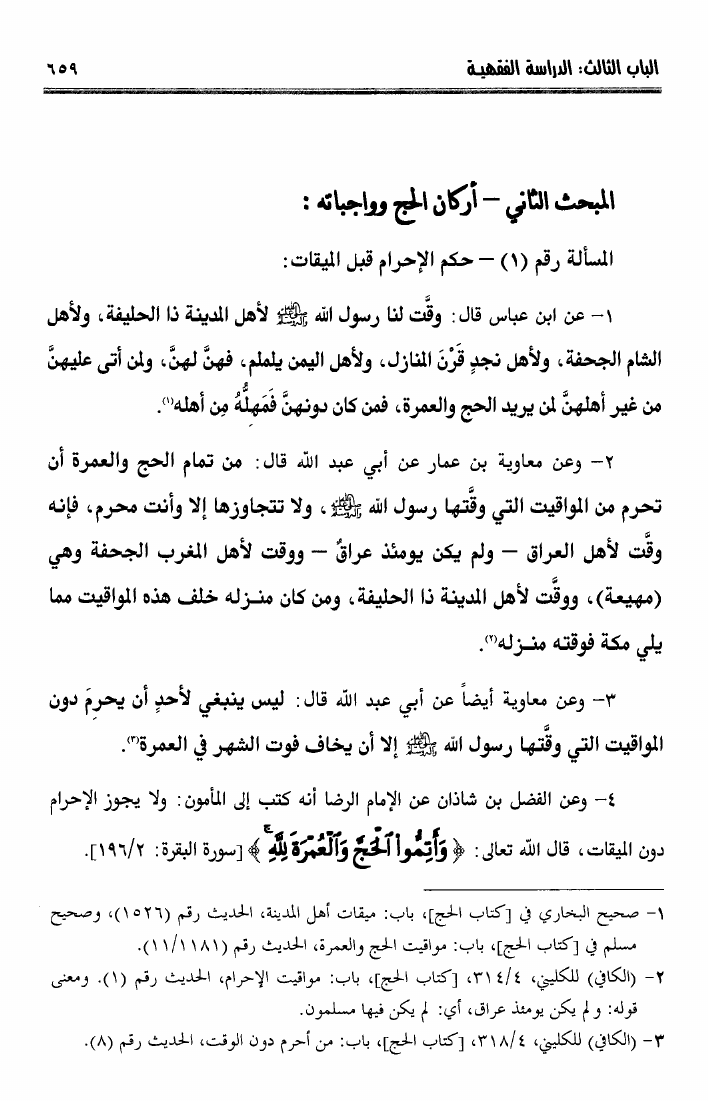 الباب الثالث: الدراسة الفقهية ٦٥٩
المبحث الثاني – أركان الحج وواجباته :
المسألة رقم (١) – حكم الإحرام قبل الميقات:
١– عن ابن عباس قال: وقَّت لنا رسول الله ﷺ لأهل المدينة ذا الحليفة، ولأهل
الشام الجحفة، ولأهل نجدٍ قَرْنَ المنازل، ولأهل اليمن يلملم، فهنَّ لهنَّ، ولمن أتى عليهنَّ
من غير أهلهنَّ لمن يريد الحج والعمرة، فمن كان دونهنَّ فَمَهِلُّهُ مِن أهله(١).
٢– وعن معاوية بن عمار عن أبي عبد الله قال: من تمام الحج والعمرة أن
تحرم من المواقيت التي وقَّتها رسول الله ﷺ، ولا تتجاوزها إلا وأنت محرم، فإنه
وقَّت لأهل العراق – ولم يكن يومئذ عراقٌ – ووقت لأهل المغرب الجحفة وهي
(مهيعة)، ووقَّت لأهل المدينة ذا الحليفة، ومن كان منـزله خلف هذه المواقيت مما
يلي مكة فوقته منـزله(٢).
٣– وعن معاوية أيضاً عن أبي عبد الله قال: ليس ينبغي لأحدٍ أن يحرِمَ دون
المواقيت التي وقَّتها رسول الله ﷺ إلا أن يخاف فوت الشهر في العمرة(٣).
٤– وعن الفضل بن شاذان عن الإمام الرضا أنه كتب إلى المأمون: ولا يجوز الإحرام
دون الميقات، قال الله تعالى: ﴿ وَأَتِمُّواْ ٱلْحَجَّ وَٱلْعُمْرَةَ لِلَّهِۚ ﴾ [سورة البقرة: ١٩٦/٢].
١– صحيح البخاري في [كتاب الحج]، باب: ميقات أهل المدينة، الحديث رقم (١٥٢٦)، وصحيح
مسلم في [كتاب الحج]، باب: مواقيت الحج والعمرة، الحديث رقم (١١/١١٨١).
٢– (الكافي) للكليني، ٣١٤/٤، [كتاب الحج]، باب: مواقيت الإحرام، الحديث رقم (١). ومعنى
قوله: و لم يكن يومئذ عراق، أي: لم يكن فيها مسلمون.
٣– (الكافي) للكليني، ٣١٨/٤، [كتاب الحج]، باب: من أحرم دون الوقت، الحديث رقم (٨).